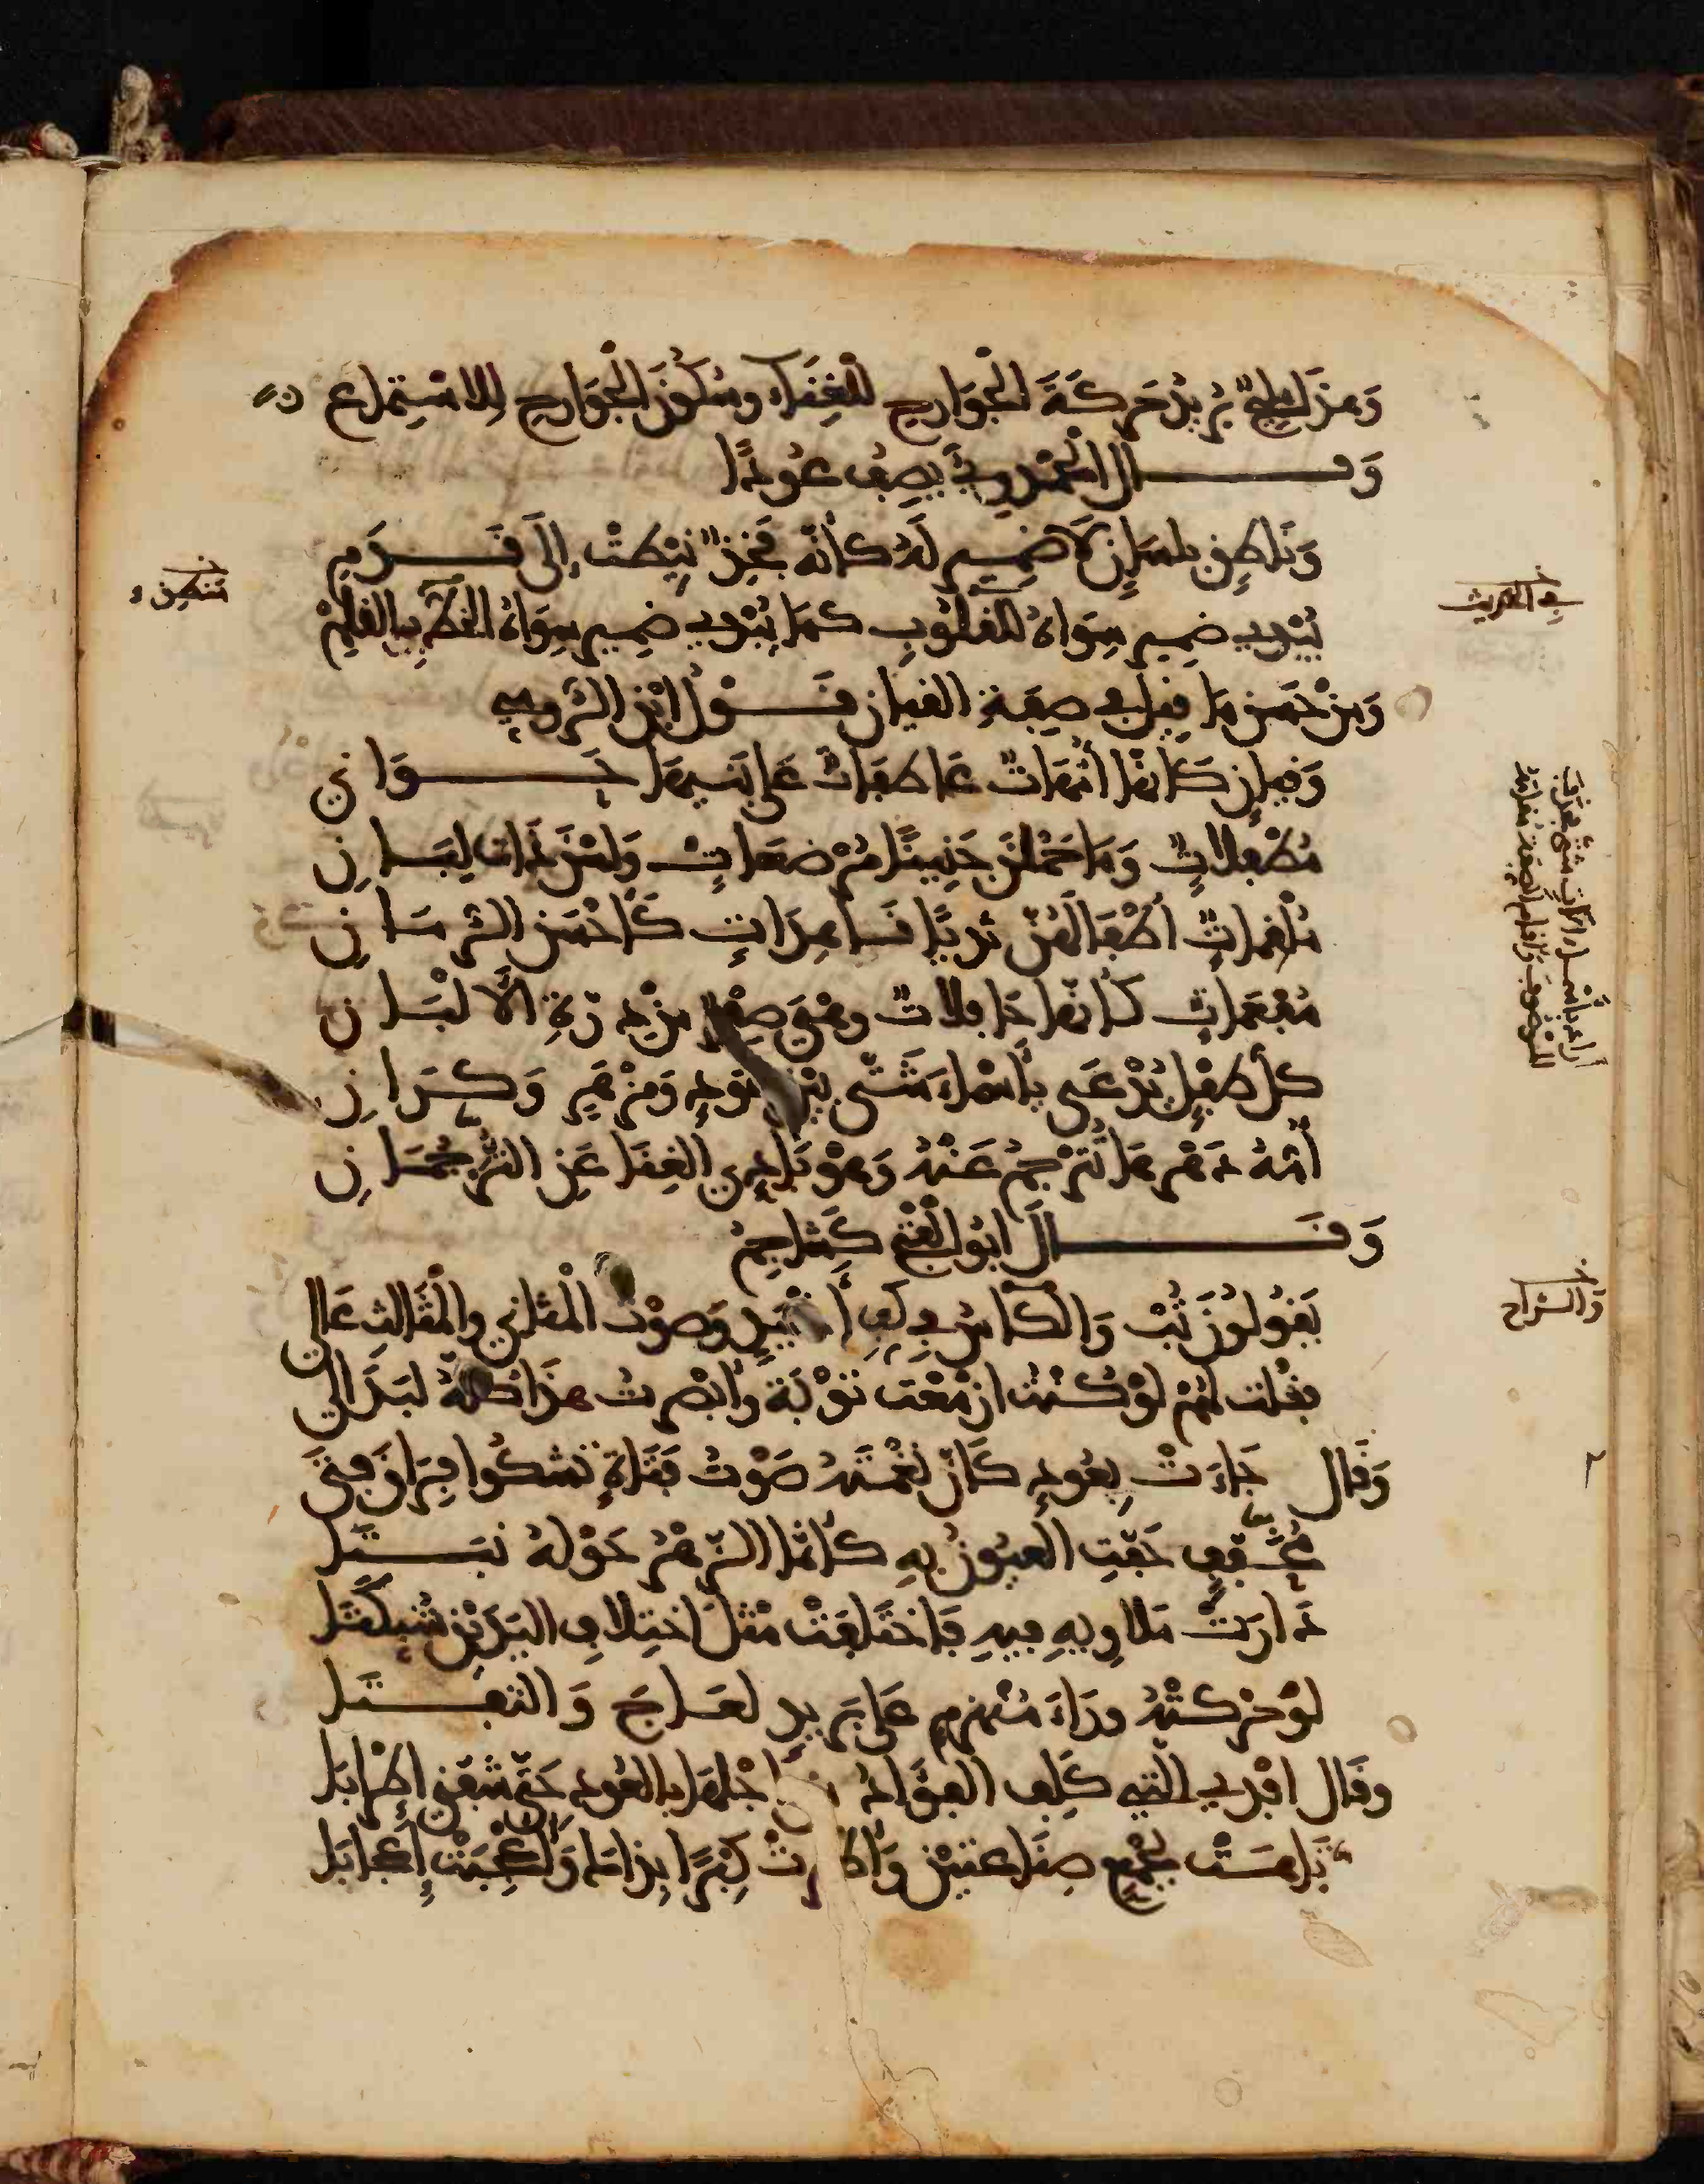 وَهذا مليح يريد حَركَةَ الجَوَارحِ للغِنَاء وسُكُونَ الجَوَارحِ لِلاسْتِماع
وَقــال الحَمْدُوِيُّ يَصِفُ عُودًا
وَنَاطِقٍ بلسَانٍ لَا ضَمِيرَ لَهُ كأنَّهُ فَخِذٌ نِيطَتْ إِلَى قَــدَمِ
يُبْدِي ضمِيرَ سِوَاهُ للقلُوبِ كَمَا يُبْدِي ضمِيرَ سِوَاهُ الخطُّ بِالقَلَمِ
وَمِنْ حَسَنِ مَا قِيلَ في صِفَةِ القيان قَــوْلُ ابْنِ الرُّومِي
وَقِيانٍ كَأنَّهَا أُمَّهَاتٌ عَاطِفَاتٌ عَلى بَنِيهَا حَــوَانِي
مُطْفِلاتٌ وَمَا حَمَلْنَ جَنِينًا مُرْضعَاتٌ وَلسْنَ ذَات لِبَــانِ
مُلْقِمَاتٌ أطْفَالَهُنَّ ثُدِيًّا نَــاهِدَاتٍ كَأحْسَنِ الرُّمّــانِ
مُفْعَمَاتٍ كأنَّهَا حَافِلاتٌ وهْيَ صِفْرٌ مِنْ دِرَّةِ الألْبَــانِ
كلُّ طِفْلٍ يُدْعَى بأسْمَاءَ شَتَّى بَيْنَ عُودٍ وَمِزْهَرٍ وَكِــرَانِ
أُمُّهُ دَهْرَهَا تُتَرْجِمُ عَنْهُ وَهْوَ بَادِي الغِنَا عَنِ التُّرْجُمَــانِ
وَقَــالَ أبُو الفَتْحِ كُشَاجِمُ
يَقُولُونَ تُبْ وَالكَأسُ فِي كَفِّ أغْيَدٍ وَصَوْتُ المثَانِي وَالْمثَالث عَالِي
فقُلت لهُمْ لَوْ كُنْتُ أزْمَعْت تَوْبَةً وَأبْصَرتُ هذَا كُلَّهُ لبَدَا لِي
وَقَال جَاءَتْ بِعُودٍ كَأنَّ نَغْمَتَهُ صَوْتُ فَتَاةٍ تَشكُوا فِرَاقَ فَتَى
مُحَفَّفٍ حَفَّتِ العيُونُ بِهِ كأنَّمَا الزّهْرُ حَوْلَهُ نَبَــتَــا
دَارَتْ مَلَاوِيهِ فِيهِ فَاخْتَلَفَتْ مِثْلَ اخْتِلَافِ اليَدَيْنِ شُبِّكَتَا
لَوْ حَرَّكَتْهُ وَرَاءَ مُنْهَزِمٍ عَلى بَرِيدٍ لَعَــاجَ وَالتَفَــتَــا
وقَال افْدِي التي كَلِفَ الفُؤَادُ مِنَ اجْلِهَا بالعُودِ حَتَّى شَفَّنِي إِطْرَابَا
تَاهَتْ بجَمْعِ صِنَاعَتَيْنِ وَأَظْهَرَتْ كِبْرًا بِذَاك وَأُعْجِبَتْ إِعْجَابَا
في الحديث
والراح